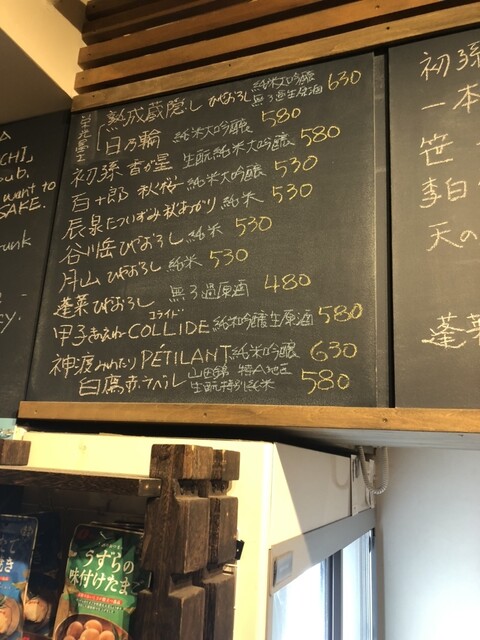 熟成蔵隠し ひやおろし 純米大吟醸 無ろ過生原酒 630
日乃輪 純米大吟醸 580
初孫 香が星 生酛純米大吟醸 580
百十郎 秋桜 純米大吟醸 530
辰泉 たついずみ 秋あがり 純米 530
谷川岳 ひやおろし 純米 530
月山 ひやおろし 純米 530
蓬莱 ひやおろし 無ろ過原酒 480
甲子 きのえね コライド COLLIDE 純米吟醸生原酒 580
神渡 みわたり PÉTILANT 純米吟醸 630
白鷹 赤ラベル 山田錦 特A地区 生酛特別純米 580
CHI,
ub.
want to
SAKE.
unk
cy.
初孫
一本
笹
李白
天の
蓬莱
うずらの
味付けたま
き